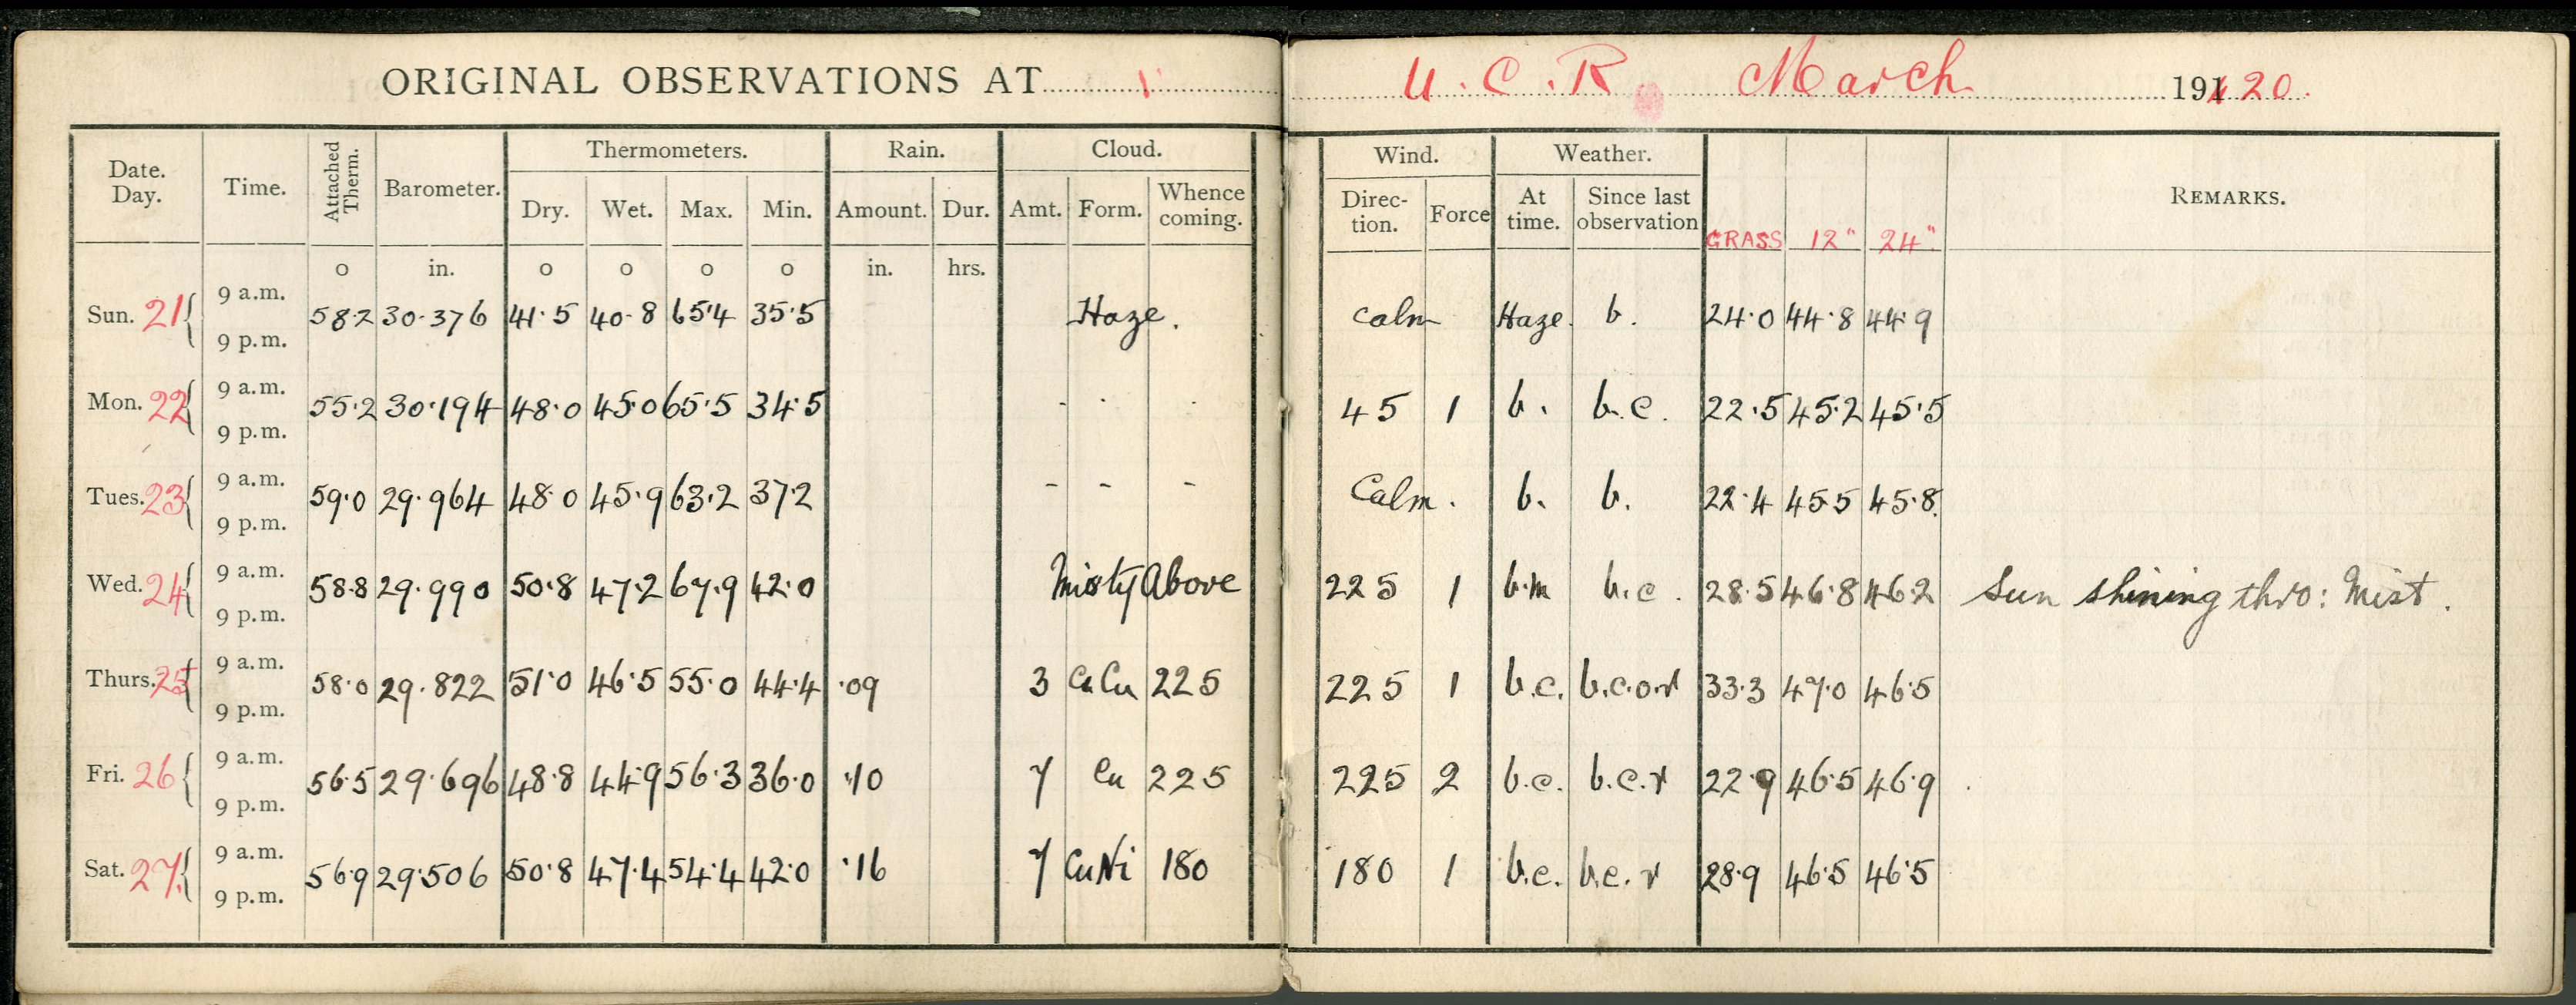 ORIGINAL OBSERVATIONS AT U. C. R March 1920.
Date. Day. Time. Attached Therm. Barometer. Thermometers. Rain. Cloud. Wind. Weather. REMARKS.
Dry. Wet. Max. Min. Amount. Dur. Amt. Form. Whence coming. Direc- tion. Force At time. Since last observation GRASS 12" 24"
o in. o o o o in. hrs.
Sun. 21 9 a.m. 58.2 30.376 41.5 40.8 65.4 35.5 Haze. Calm Haze. b. 24.0 44.8 44.9
9 p.m.
Mon. 22 9 a.m. 55.2 30.194 48.0 45.0 65.5 34.5 - - - 45 1 b. b.c. 22.5 45.2 45.5
9 p.m.
Tues. 23 9 a.m. 59.0 29.964 48.0 45.9 63.2 37.2 - - - Calm. b. b. 22.4 45.5 45.8
9 p.m.
Wed. 24 9 a.m. 58.8 29.990 50.8 47.2 67.9 42.0 Misty Above 225 1 b.m b.c. 28.5 46.8 46.2 Sun shining thro: Mist.
9 p.m.
Thurs. 25 9 a.m. 58.0 29.822 51.0 46.5 55.0 44.4 .09 3 225 225 1 b.c. b.c.o.r 33.3 47.0 46.5
9 p.m.
Fri. 26 9 a.m. 56.5 29.696 48.8 44.9 56.3 36.0 .10 7 Cu 225 225 2 b.c. b.c.r 22.9 46.5 46.9
9 p.m.
Sat. 27 9 a.m. 56.9 29.506 50.8 47.4 54.4 42.0 .16 7 CuNi 180 180 1 b.c. b.c.r 28.9 46.5 46.5
9 p.m.